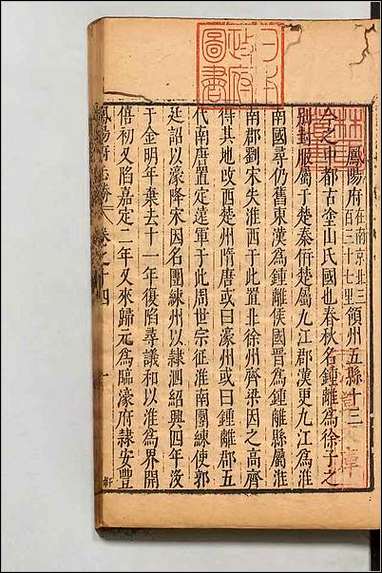 鳳陽府在南京北三百三十七里領州五縣十三
今之中都古塗山氏國也春秋名鍾離為徐子之
別封服屬于楚秦衍楚屬九江郡漢更九江為淮
南國尋仍舊東漢為鍾離侯國晉為鍾離縣屬淮
南郡劉宋失淮西于此置北徐州齊梁因之高齊
得其地改西楚州隋唐或曰濠州或曰鍾離郡五
代南唐置定遠軍于此周世宗征淮南團練使郭
廷詔以濠降宋因名團練州以隸泗紹興四年沒
于金明年棄去十一年復陷尋議和以淮為界開
僖初又陷嘉定二年又來歸元為臨濠府隸安豐
鳳陽府志
卷之十四
政府
圖書